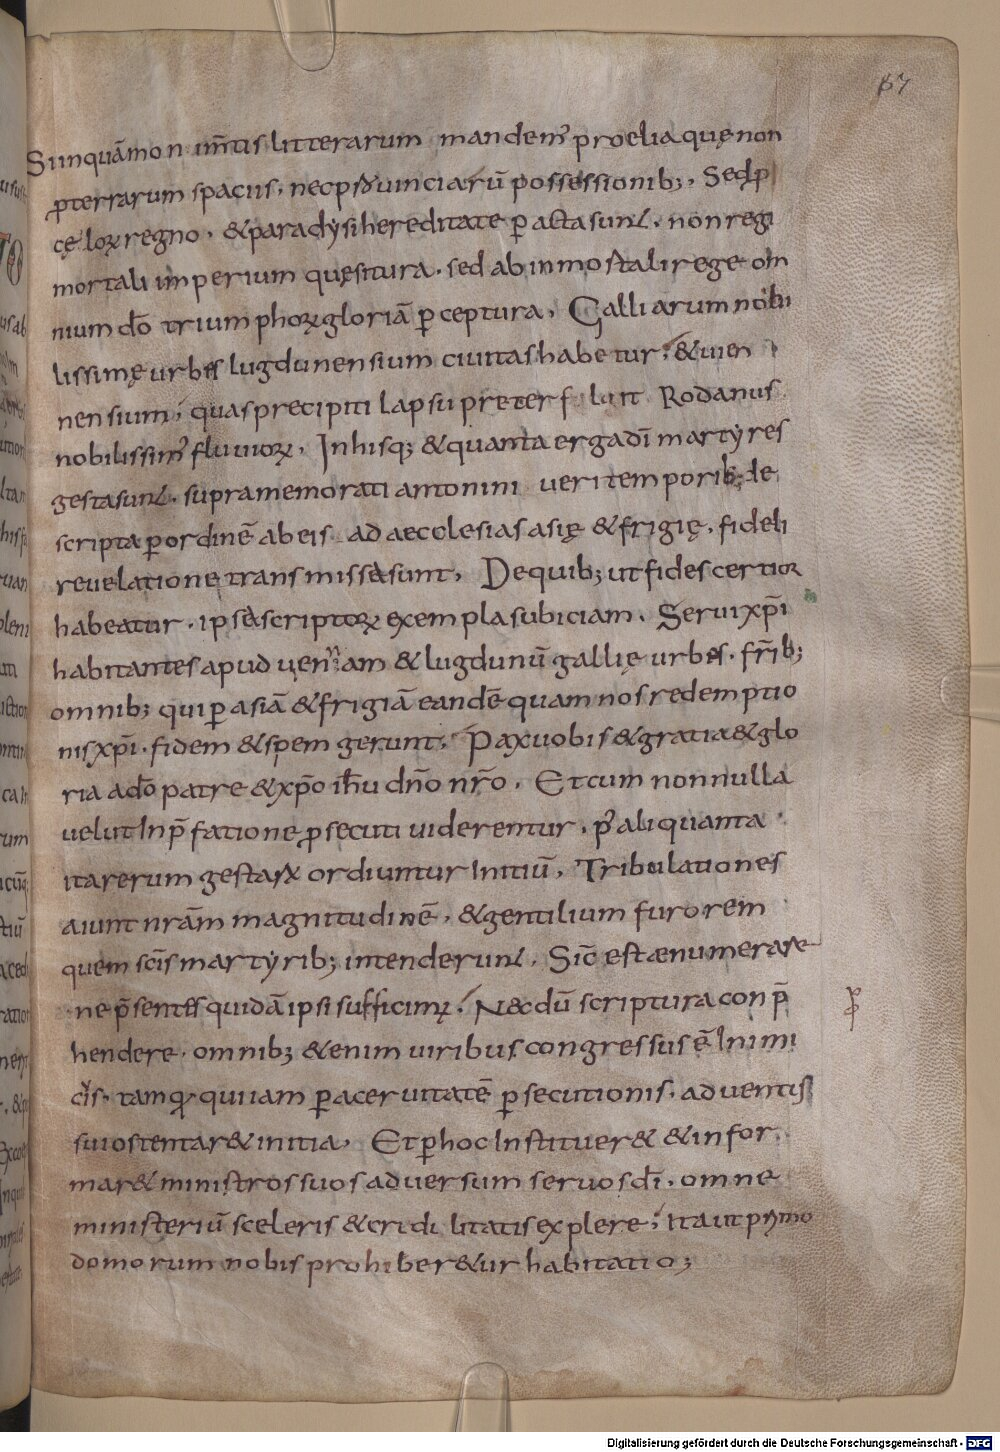 67
Sunquā non m̄tis litterarum mandem' proelia quę non
p terrarum spaciis, nec p puinciarū possessionib;, Sed p
cęloꝝ regno, & paradysi hereditate pacta sunt, non regi
mortali imperium quęsitura, sed ab inmortali rege om
nium dō triumphoꝝ gloriā pceptura, Galliarum nobi
lissimę urbis lugdunensium ciuitas habetur, & uien
nensium, quas precipiti lapsu preterfluit Rodanus
nobilissim' fluuioꝝ, In hisq; & quanta erga dī martyres
gesta sunt, supra memorati antonini ueri temporib; de
scripta p ordinē ab eis ad aecclesias asię & frigię, fideli
reuelatione transmissa sunt, De quib; ut fides certior
habeatur, ipsa scriptoꝝ exempla subiciam, Serui xp̄i
habitantes apud uennam & lugdunū gallię urbis, fr̄ib;
omnib; qui p asiā & frigiā eandē quam nos redemptio
nis xp̄i, fidem & spem gerunt, Pax uobis & gratia & glo
ria a dō patre & xp̄o ih̄u dn̄o nr̄o, Et cum nonnulla
uelut In p̄fatione psecuti uiderentur, p' aliquanta
ita rerum gestaꝝ ordiuntur Initiū, Tribulationes
aiunt nr̄am magnitudinē, & gentilium furorem
quem scīs martyrib; intenderunt, Sic̄ est ænumerare
ne p̄sentes quidā ipsi sufficim', Nec dū scriptura conp̄
hendere, omnib; & enim uiribus congressus ē Inimi
cus, tamq quuam p aceruitatē psecutionis, aduentus
sui ostentar& initia, Et p hoc Instituer& & infor
mar& ministros suos aduersum seruos dī, omne
ministeriū sceleris & crudilitatis explere, Ita ut primo
domorum nobis prohiber&ur habitatio;
Digitalisierung gefördert durch die Deutsche Forschungsgemeinschaft - DFG